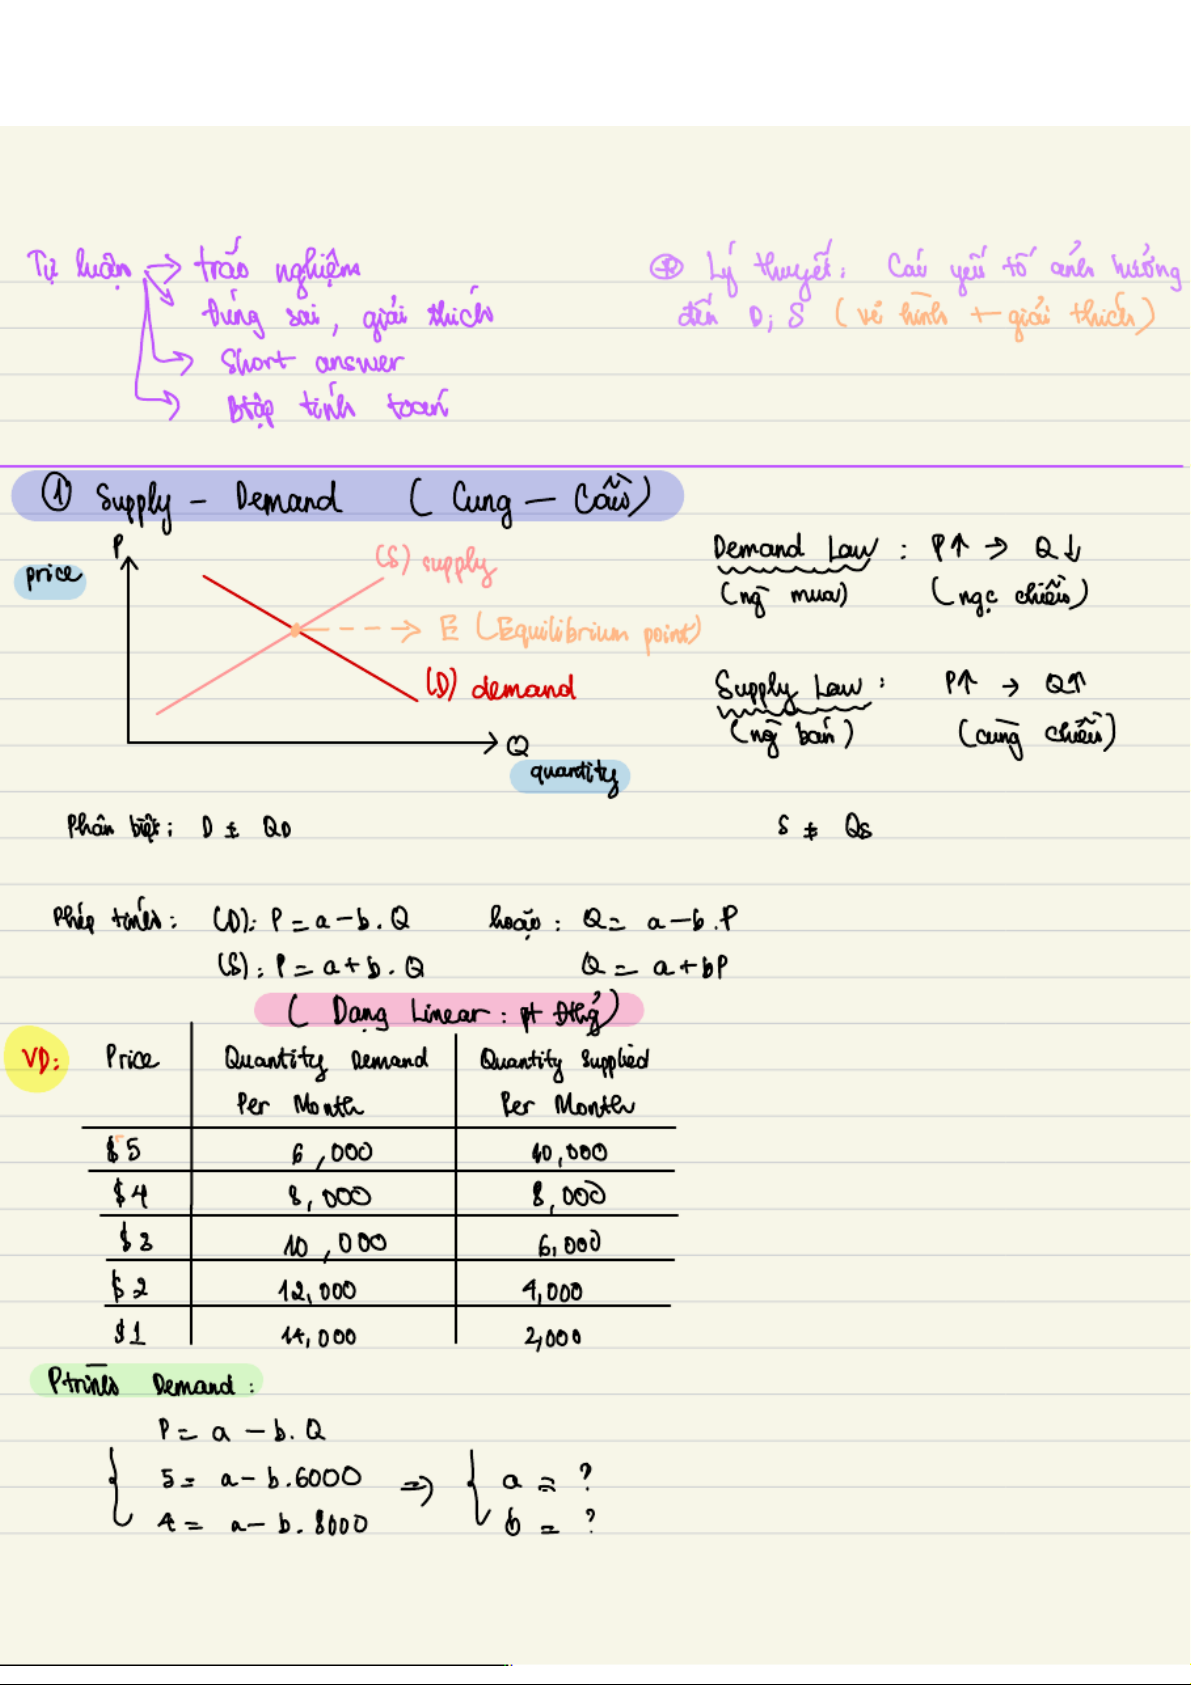 Tự luận → trắc nghiệm
→ Đúng sai, giải thích
→ Short answer
→ Btập tính toán
⊕ Lý thuyết: Các yếu tố ảnh hưởng
đến D, S (vẽ hình + giải thích)
① Supply - Demand ( Cung - Cầu )
P
price
(S) supply
E (Equilibrium point)
(D) demand
Q
quantity
Demand Law : P↑ → Q↓
(ng mua) (ngc chiều)
Supply Law : P↑ → Q↑
(ng bán) (cùng chiều)
Phân biệt: D ≠ QD S ≠ Qs
Phép tính: (D): P = a - b.Q hoặc: Q = a - b.P
(S): P = a + b.Q Q = a + bP
( Dạng Linear: pt Đthg)
VD: Price Quantity Demand Quantity Supplied
Per Month Per Month
$5 6,000 10,000
$4 8,000 8,000
$3 10,000 6,000
$2 12,000 4,000
$1 14,000 2,000
Ptrình Demand:
P = a - b.Q
5 = a - b.6000 => a = ?
4 = a - b.8000 b = ?